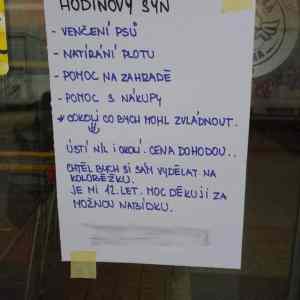 HODINOVÝ SYN
- VENČENÍ PSŮ
- NATÍRÁNÍ PLOTU
- POMOC NA ZAHRADĚ
- POMOC S NÁKUPY
COKOLI CO BYCH MOHL ZVLÁDNOUT.
ÚSTÍ N/L I OKOLÍ. CENA DOHODOU..
CHTĚL BYCH SI SÁM VYDĚLAT NA
KOLOBĚŽKU.
JE MI 12.LET. MOC DĚKUJI ZA
MOŽNOU NABÍDKU.